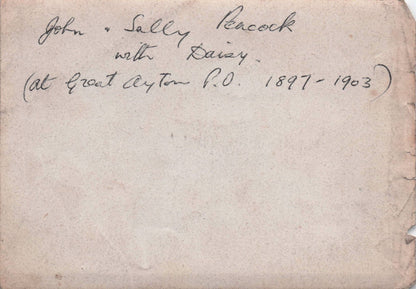 John & Sally Peacock
with Daisy.
(at Great Ayton P.O. 1897-1903)